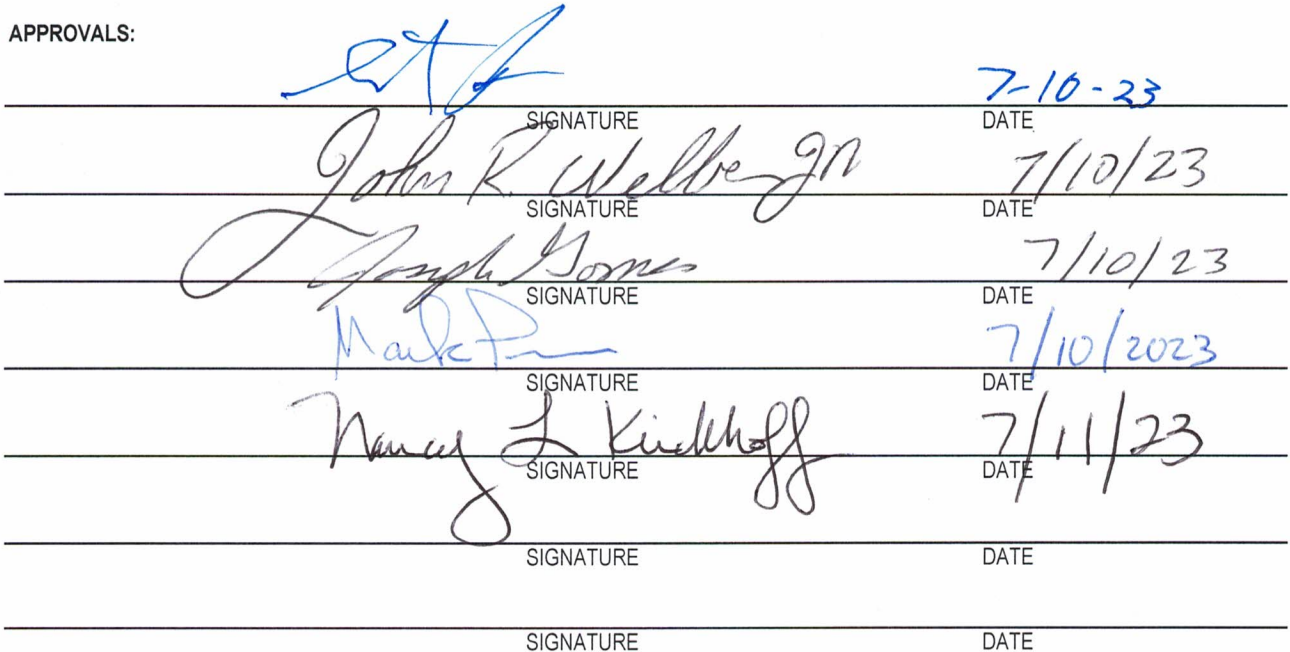 APPROVALS:
7-10-23
SIGNATURE DATE
John R. Jr 7/10/23
SIGNATURE DATE
Joseph Gomes 7/10/23
SIGNATURE DATE
Mark 7/10/2023
SIGNATURE DATE
Nancy L Kirchhoff 7/11/23
SIGNATURE DATE
SIGNATURE DATE
SIGNATURE DATE